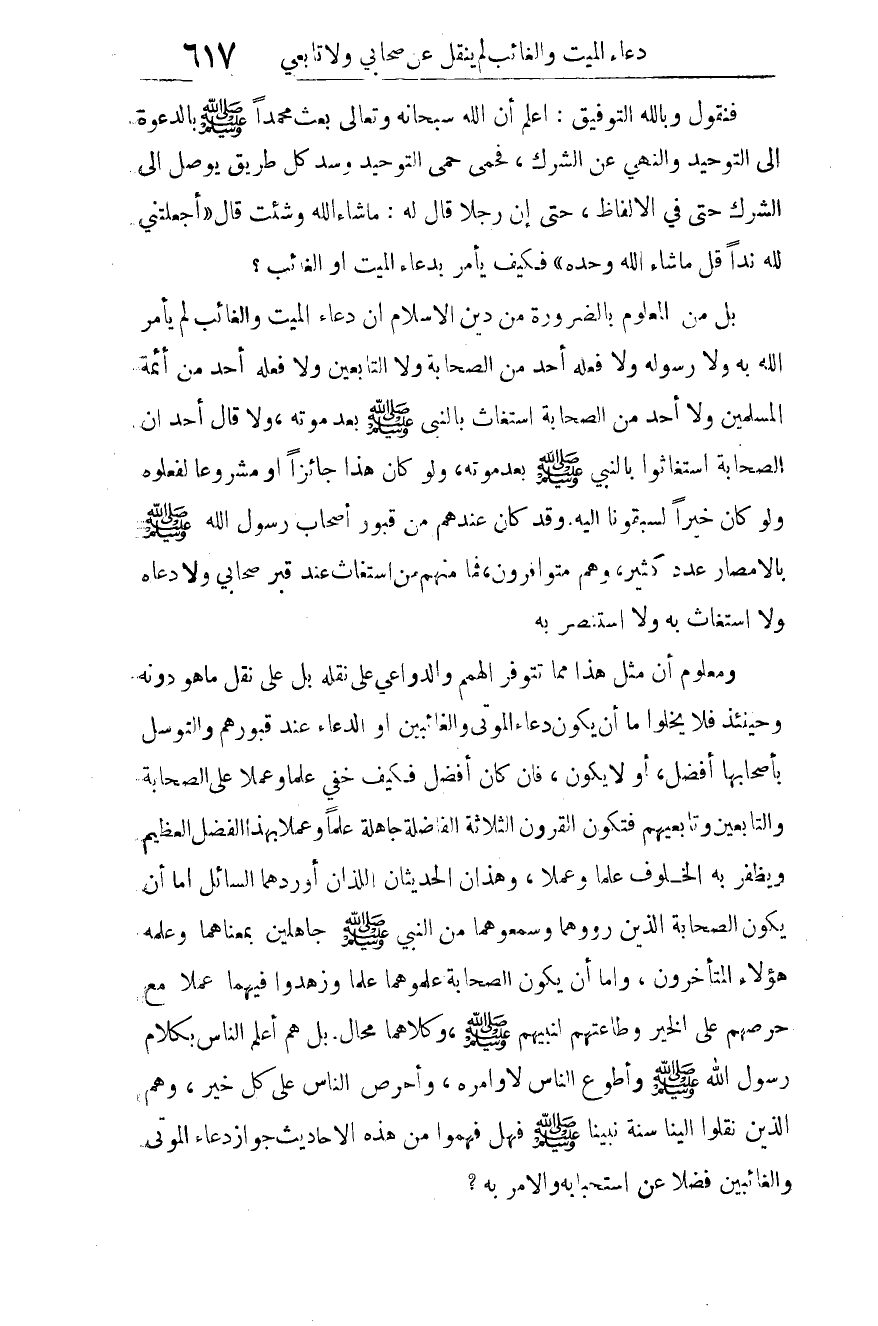 دعاء الميت والغائب لم ينقل عن صحابي ولا تابعي ٦١٧
فنقول وبالله التوفيق : اعلم أن الله سبحانه وتعالى بعث محمداً ﷺ بالدعوة
الى التوحيد والنهي عن الشرك ، فحمى حمى التوحيد وسد كل طريق يوصل الى
الشرك حتى في الالفاظ ، حتى إن رجلا قال له : ماشاء الله وشئت قال «أجعلتني
لله نداً قل ماشاء الله وحده» فكيف يأمر بدعاء الميت او الغائب ؟
بل من المعلوم بالضرورة من دين الاسلام ان دعاء الميت والغائب لم يأمر
الله به ولا رسوله ولا فعله أحد من الصحابة ولا التابعين ولا فعله أحد من أئمة
المسلمين ولا أحد من الصحابة استغاث بالنبي ﷺ بعد موته ،ولا قال أحد ان
الصحابة استغاثوا بالنبي ﷺ بعدموته، ولو كان هذا جائزاً او مشروعا لفعلوه
ولو كان خيراً لسبقونا اليه. وقد كان عندهم من قبور أصحاب رسول الله ﷺ
بالامصار عدد كثير، وهم متوافرون، فما منهم من استغاث عند قبر صحابي ولا دعاه
ولا استغاث به ولا استنصر به
ومعلوم أن مثل هذا مما تتوفر الهمم والدواعي على نقله بل على نقل ماهو دونه
وحينئذ فلا يخلوا ما أن يكون دعاء الموتى والغائبين او الدعاء عند قبورهم والتوسل
بأصحابها أفضل، أو لا يكون ، فان كان أفضل فكيف خفي علما وعملا على الصحابة
والتابعين وتابعيهم فتكون القرون الثلاثة الفاضلة جاهلة علماً وعملا بهذا الفضل العظيم
ويظفر به الخلوف علما وعملا ، وهذان الحديثان اللذان أوردهما السائل اما أن
يكون الصحابة الذين رووهما وسمعوهما من النبي ﷺ جاهلين بمعناهما وعلمه
هؤلاء المتأخرون ، واما أن يكون الصحابة علموهما علما وزهدوا فيهما عملا مع
حرصهم على الخير وطاعتهم لنبيهم ﷺ ،وكلاهما محال. بل هم أعلم الناس بكلام
رسول الله ﷺ وأطوع الناس لاوامره ، وأحرص الناس على كل خير ، وهم
الذين نقلوا الينا سنة نبينا ﷺ فهل فهموا من هذه الاحاديث جواز دعاء الموتى
والغائبين فضلا عن استحبابه والامر به ؟